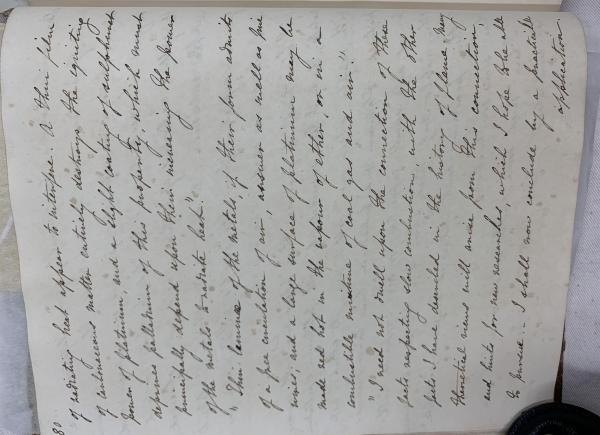 80
of radiating heat appear to interfere. A thin film
of carbonaceous matter entirely destroys the igniting
power of platinum and a slight coating of sulphuret
deprives palladium of this property, which must
principally depend upon their increasing the power
of the metals to radiate heat."
"Thin laminae of the metals, if their form admits
of a free circulation of air, answer as well as fine
wires, and a large surface of platinum may be
made red hot in the vapour of ether, or in a
combustible mixture of coal gas and air."
"I need not dwell upon the connection of these
facts respecting slow combustion with the other
facts I have described in the history of flame. Many
theoretical views will arise from this connection,
and hints for new researches, which I hope to be able
to pursue. I shall now conclude by a practical
application.